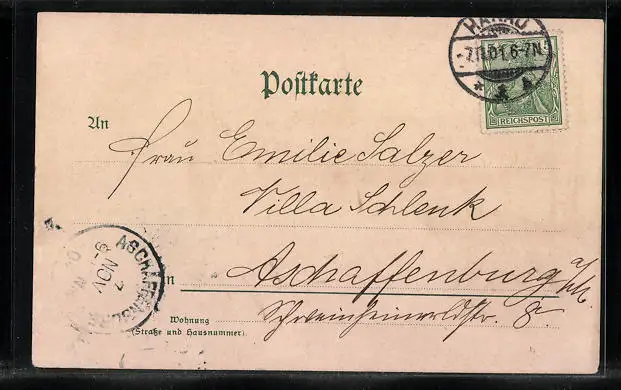 HANAU
-7.11.01.6-7N.
REICHSPOST
Postkarte
An
Frau Emilie Salzer
Villa Schlenk
in Aschaffenburg a/M.
ASCHAFFENBURG
7 NOV
Wohnung
(Straße und Hausnummer)
Schweinheimerstr. 8.